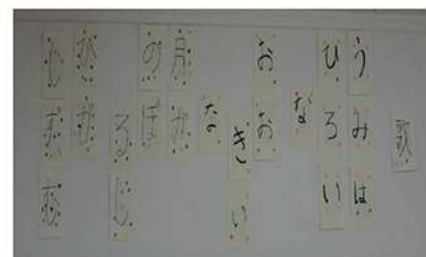 歌
うみは
ひろい
な
おお
きい
な
月が
のぼ
るし
ひが
しずむ